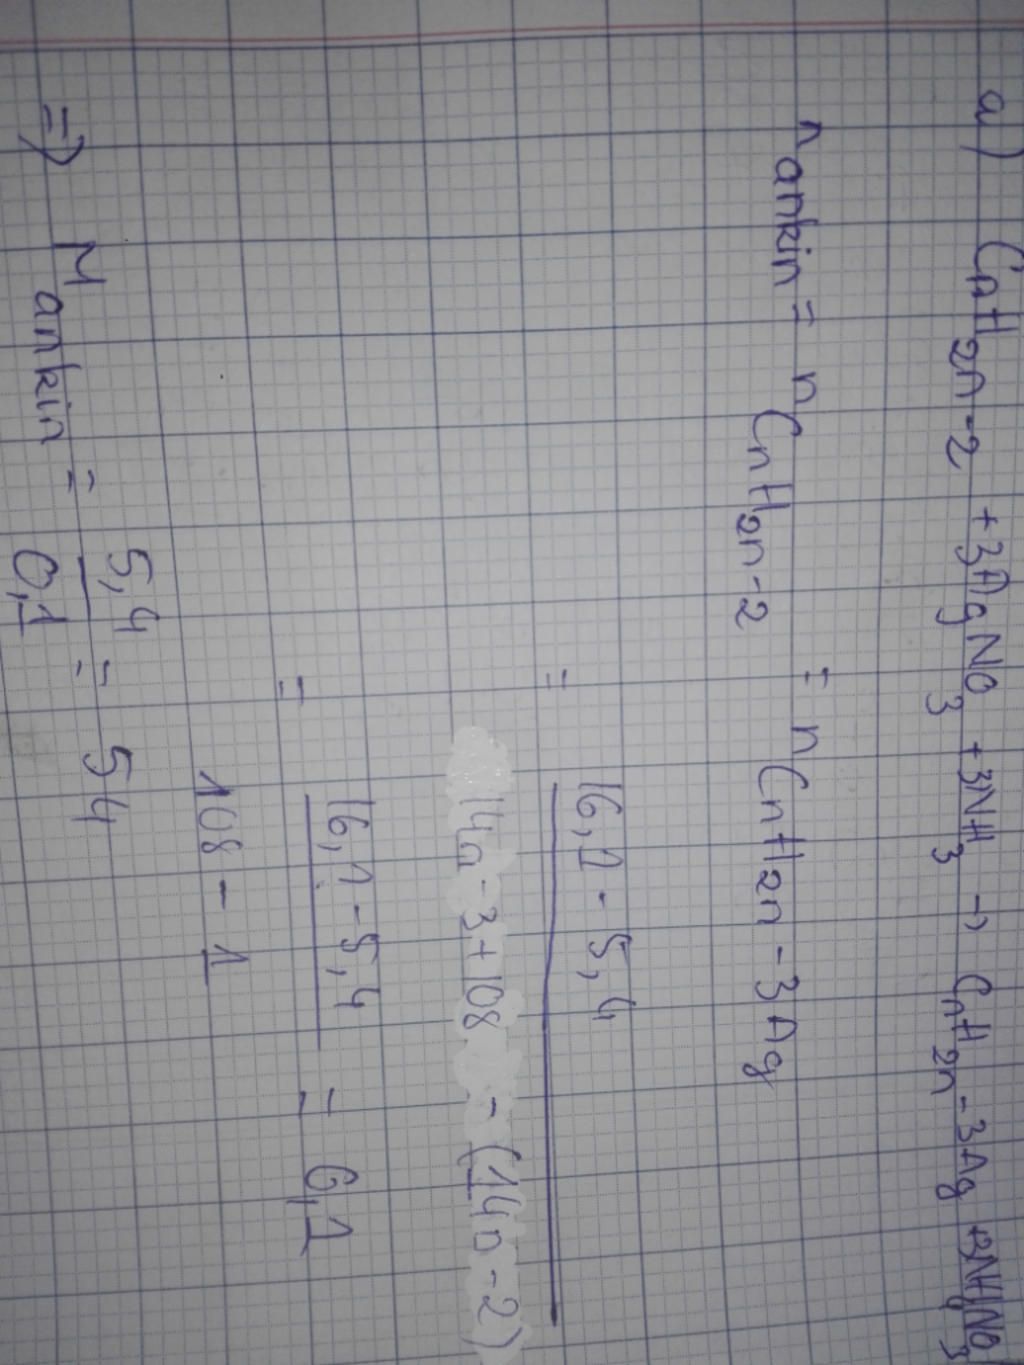 a) CnH2n-2 + 3AgNO3 + 3NH3 → CnH2n-3Ag + 3NH4NO3
nankin = nCnH2n-2 = nCnH2n-3Ag
= 16,1 - 5,4
14n-3+108 - (14n-2)
= 16,1-5,4 = 0,1
108 - 1
=> Mankin = 5,4 = 54
0,1